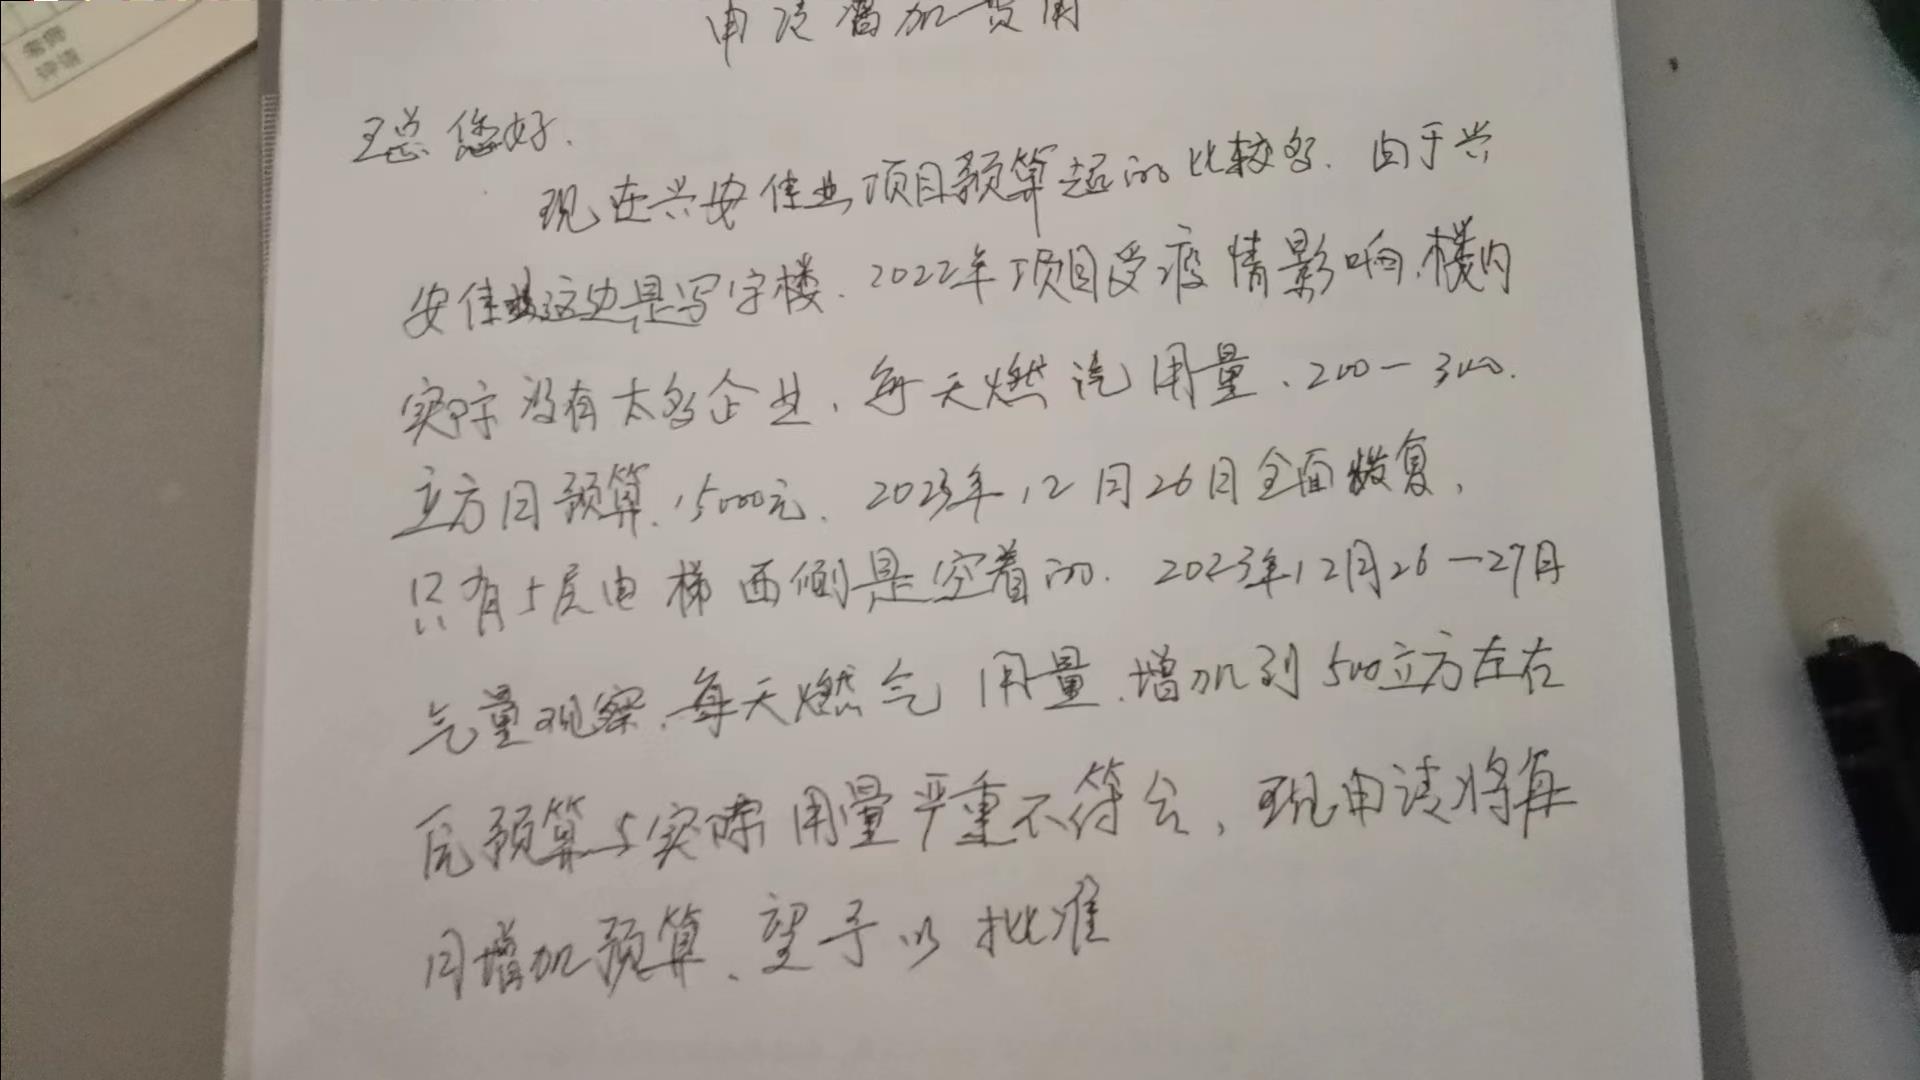 申请增加费用
王总您好.
现在兴安佳业项目预算超的比较多.由于兴
安佳业这边是写字楼.2022年项目受疫情影响.楼内
实际没有太多企业,每天燃汽用量、200-300.
立方月预算.15000元.2023年12月26日全面恢复,
只有5层电梯西侧是空着的.2023年12月26-27日
气量观察.每天燃气用量.增加到500立方左右
预算与实际用量严重不符合,现申请将每
月增加预算、望予以批准